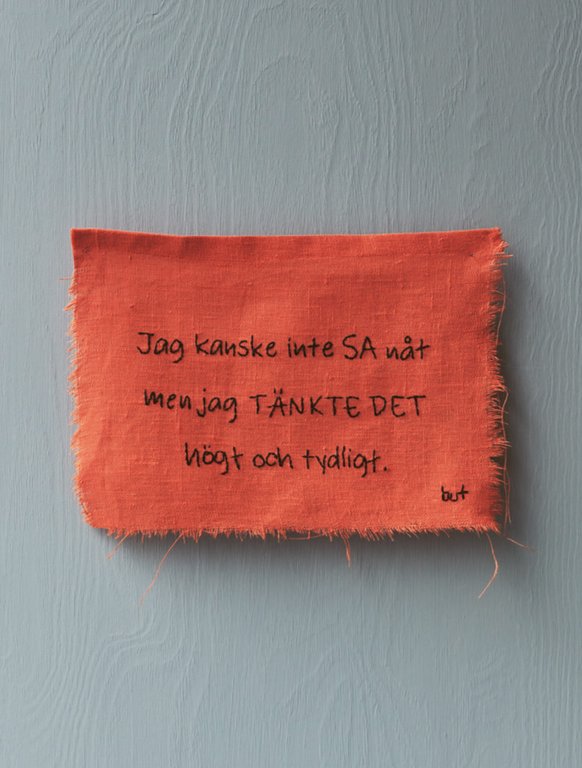 Jag kanske inte SA nåt
men jag TÄNKTE DET
högt och tydligt.
but